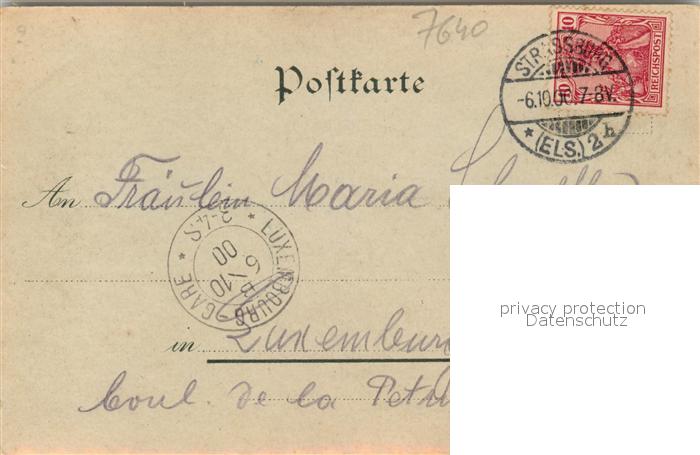 7640
10 REICHSPOST
Postkarte
STRASSBURG
-6.10.00.7-8V.
* (ELS.) 2 h
An Fräulein Maria
LUXEMBOURG GARE
2-4S
6/10
00
privacy protection
Datenschutz
in Luxemburg
boul. de la